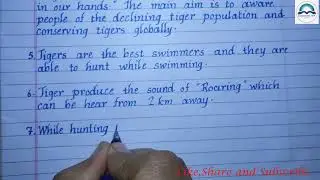 in our hands." The main aim is to aware
people of the declining tiger population and
conserving tigers globally.
5. Tigers are the best swimmers and they are
able to hunt while swimming.
6. Tiger produce the sound of "Roaring" which
can be hear from 2 km away.
7. While hunting
Like, Share and Subscribe